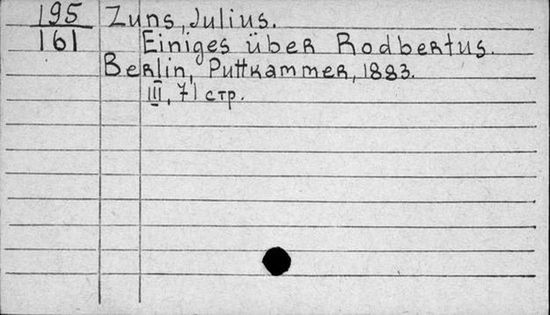 195 Zuns, Julius.
161 Einiges über Rodbertus.
Berlin, Puttkammer, 1883.
III, 71 стр.